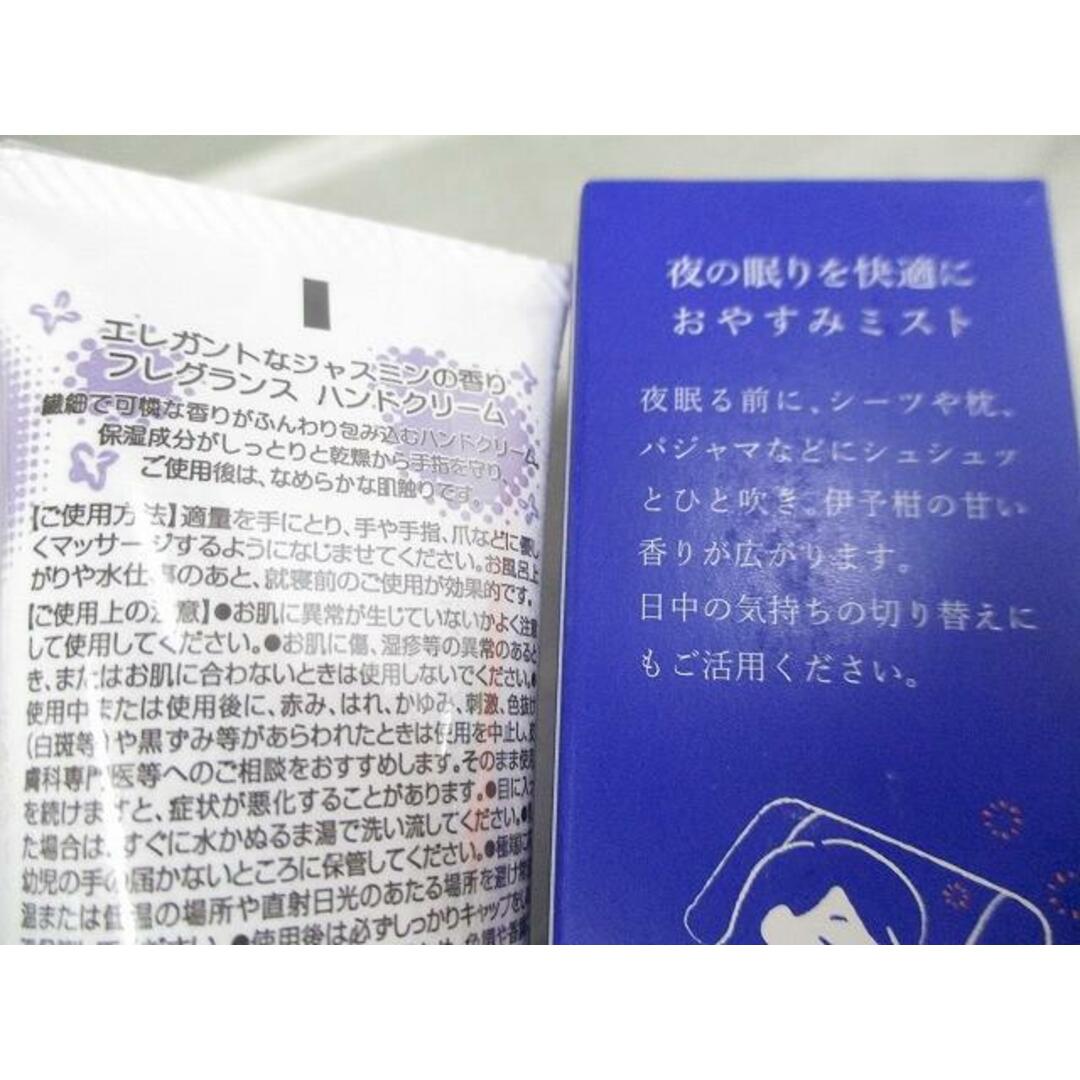 エレガントなジャスミンの香り
フレグランス ハンドクリーム
繊細で可憐な香りがふんわり包み込むハンドクリーム。
保湿成分がしっとりと乾燥から手指を守り、
ご使用後は、なめらかな肌触りです。
【ご使用方法】適量を手にとり、手や手指、爪などに優し
くマッサージするようになじませてください。お風呂上
がりや水仕事のあと、就寝前のご使用が効果的です。
【ご使用上の注意】●お肌に異常が生じていないかよく注意
して使用してください。●お肌に傷、湿疹等の異常のあると
き、またはお肌に合わないときは使用しないでください。●
使用中または使用後に、赤み、はれ、かゆみ、刺激、色抜け
(白斑等)や黒ずみ等があらわれたときは使用を中止し、皮
膚科専門医等へのご相談をおすすめします。そのまま使用
を続けますと、症状が悪化することがあります。●目に入っ
た場合は、すぐに水かぬるま湯で洗い流してください。●
幼児の手の届かないところに保管してください。●極端に
温または低温の場所や直射日光のあたる場所を避け
●使用後は必ずしっかりキャップを
夜の眠りを快適に
おやすみミスト
夜眠る前に、シーツや枕、
パジャマなどにシュシュッ
とひと吹き。伊予柑の甘い
香りが広がります。
日中の気持ちの切り替えに
もご活用ください。